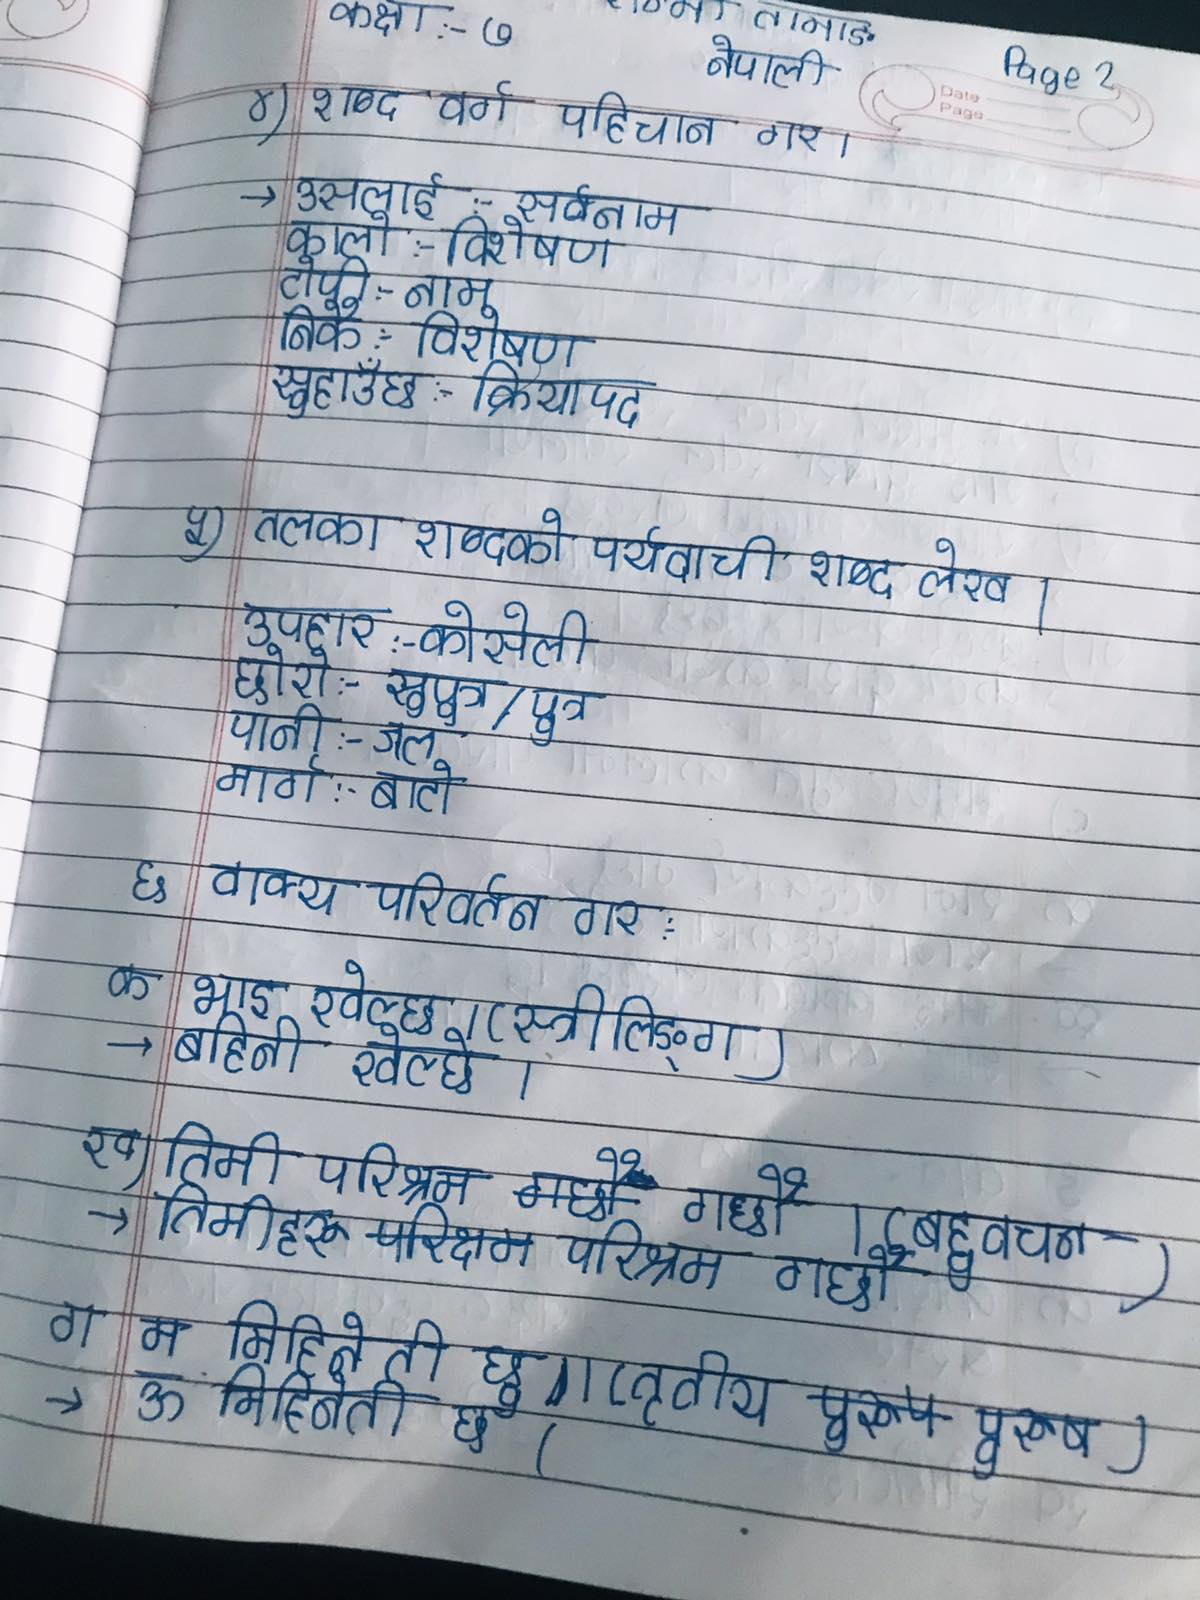 तामाङ
कक्षा :- ७
नेपाली
Page 2
Date
Page
४) शब्द वर्ग पहिचान गर।
→ उसलाई :- सर्वनाम
कालो :- विशेषण
टोपी :- नाम
निकै :- विशेषण
सुहाउँछ :- क्रियापद
५) तलका शब्दको पर्यवाची शब्द लेख।
उपहार :- कोसेली
छोरो :- सुपुत्र/पुत्र
पानी :- जल
मार्ग :- बाटो
६ वाक्य परिवर्तन गर :
क भाइ खेल्छ। (स्त्रीलिङ्ग)
→ बहिनी खेल्छे।
ख) तिमी परिश्रम गर्छौ गर्छौ। (बहुवचन)
→ तिमीहरू परिक्षम परिश्रम गर्छौ
ग म मिहिनेती छु। (तृतीय पुरूष पुरूष)
→ ऊ मिहिनेती छ।